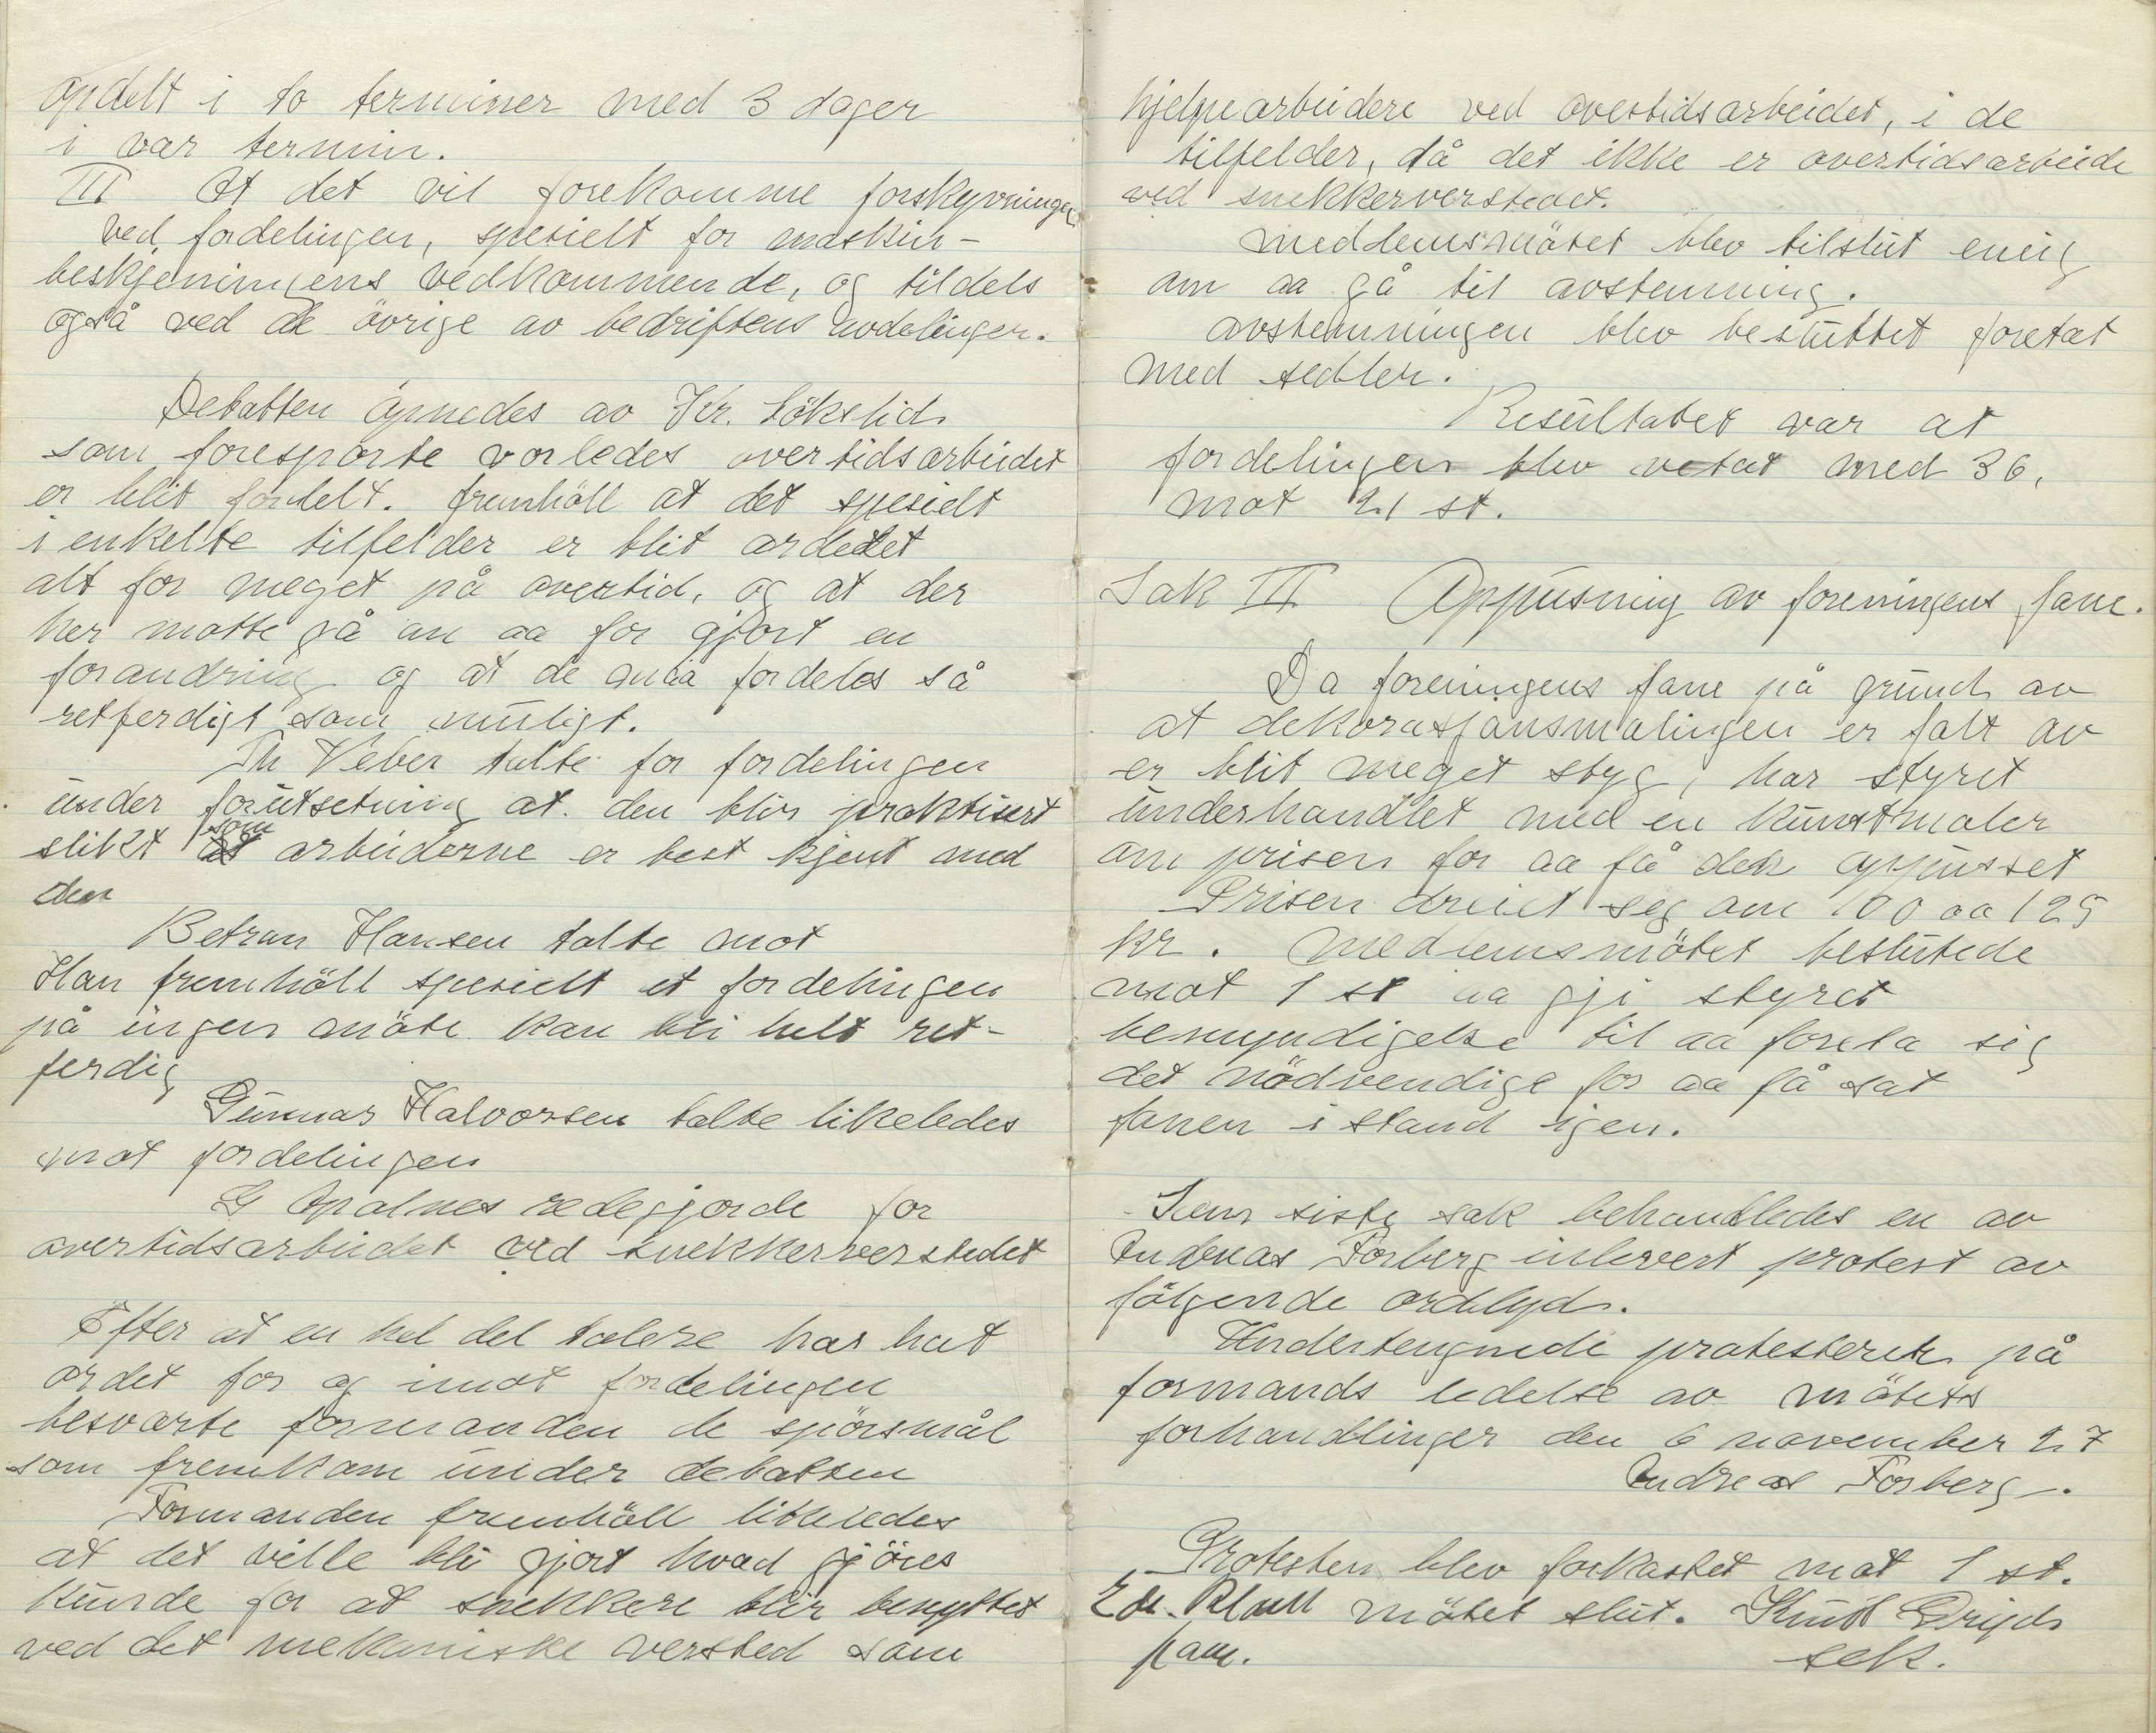 opdelt i to terminer med 3 dager
i var termin.
III At det vil forekomme forskyvninger
ved fordelingen, spesielt for maskin-
beskjeningens vedkommende, og tildels
også ved de övrige av bedriftens avdelinger.
Debatten åpnedes av Kr. Lökslid
som foresporte vorledes overtidsarbeidet
er blit fordelt. fremhöll at det spesielt
i enkelte tilfelder er blit ardedet
alt for meget på overtid, og at der
her motte gå an aa for gjort en
forandring og at de maa fordeles så
retferdigt som muligt.
Th Veber talte for fordelingen
under forutsetning at den blir praktisert
slikt som arbeiderne er best kjent med
den
Betran Hansen talte mot
Han fremhöll spesielt at fordelingen
på ingen möte kan bli helt ret-
ferdig
Gunnar Halvorsen talte likeledes
mot fordelingen
G Opalnes redegjorde for
overtidsarbeidet ved snekkerverstedet
Efter at en hel del talere har hat
ordet for og imot fordelingen
besvarte formanden de spörsmål
som fremkom under debatten
Formanden fremhöll likeledes
at det ville bli gjort hvad gjöres
kunde for at snekkere blir benyttet
ved det mekaniske versted som
hjelpearbeidere ved overtidsarbeidet, i de
tilfelder, då det ikke er overtidsarbeide
ved snekkerverstedet.
medlemsmötet blev tilslut enig
om aa gå til avstemning.
avstemningen blev besluttet foretat
med sedler.
Resultatet var at
fordelingen blev vetat med 36,
mot 21 st.
Sak III Oppusning av foreningens fane.
Da foreningens fane på grund av
at dekorasjonsmalingen er falt av
er blit meget styg, har styret
underhandlet med en kunstmaler
om prisen for aa få den oppusset
Prisen dreiet seg om 100 aa 125
kr. medlemsmötet beslutede
mot 1 st aa gji styret
bemyndigelse til aa foreta sig
det nödvendige for aa få sat
fanen i stand igen.
Som siste sak behandledes en av
Andreas Forberg inlevert protest av
fölgende ordlyd.
Undertengnede protesterer på
formands ledelse av mötets
forhandlinger den 6 november 27
Andreas Forberg.
Protesten blev forkastet mot 1 st.
mötet slut. Knut
sek.